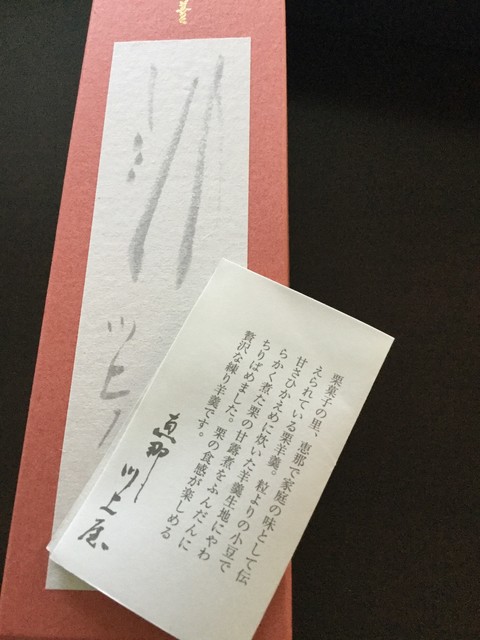 栗菓子の里、恵那で家庭の味として伝
えられている栗羊羹。粒よりの小豆で
甘さひかえめに炊いた羊羹生地にやわ
らかく煮た栗の甘露煮をふんだんに
ちりばめました。栗の食感が楽しめる
贅沢な練り羊羹です。
恵那 川上屋
川上